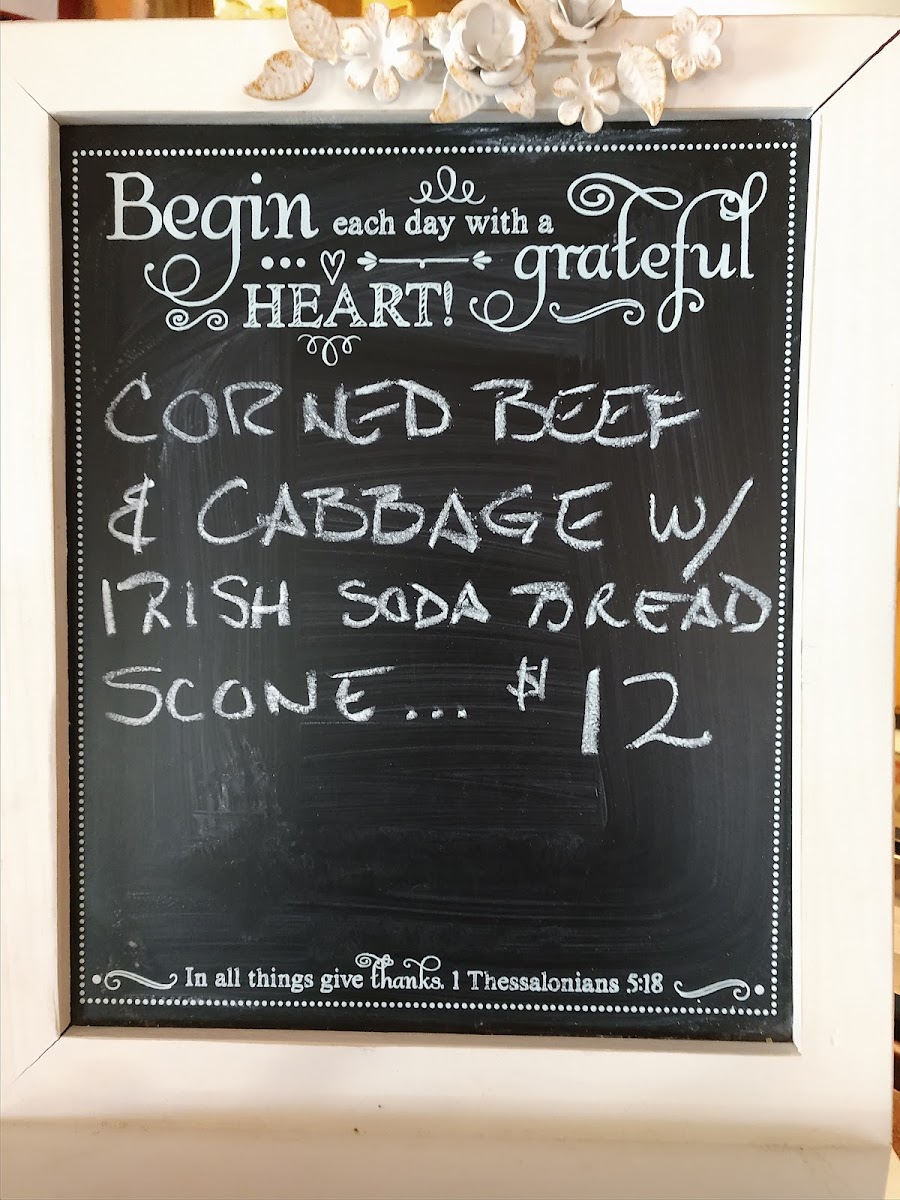 Begin each day with a grateful
HEART!
CORNED BEEF
& CABBAGE W/
IRISH SODA BREAD
SCONE... $12
In all things give thanks. 1 Thessalonians 5:18